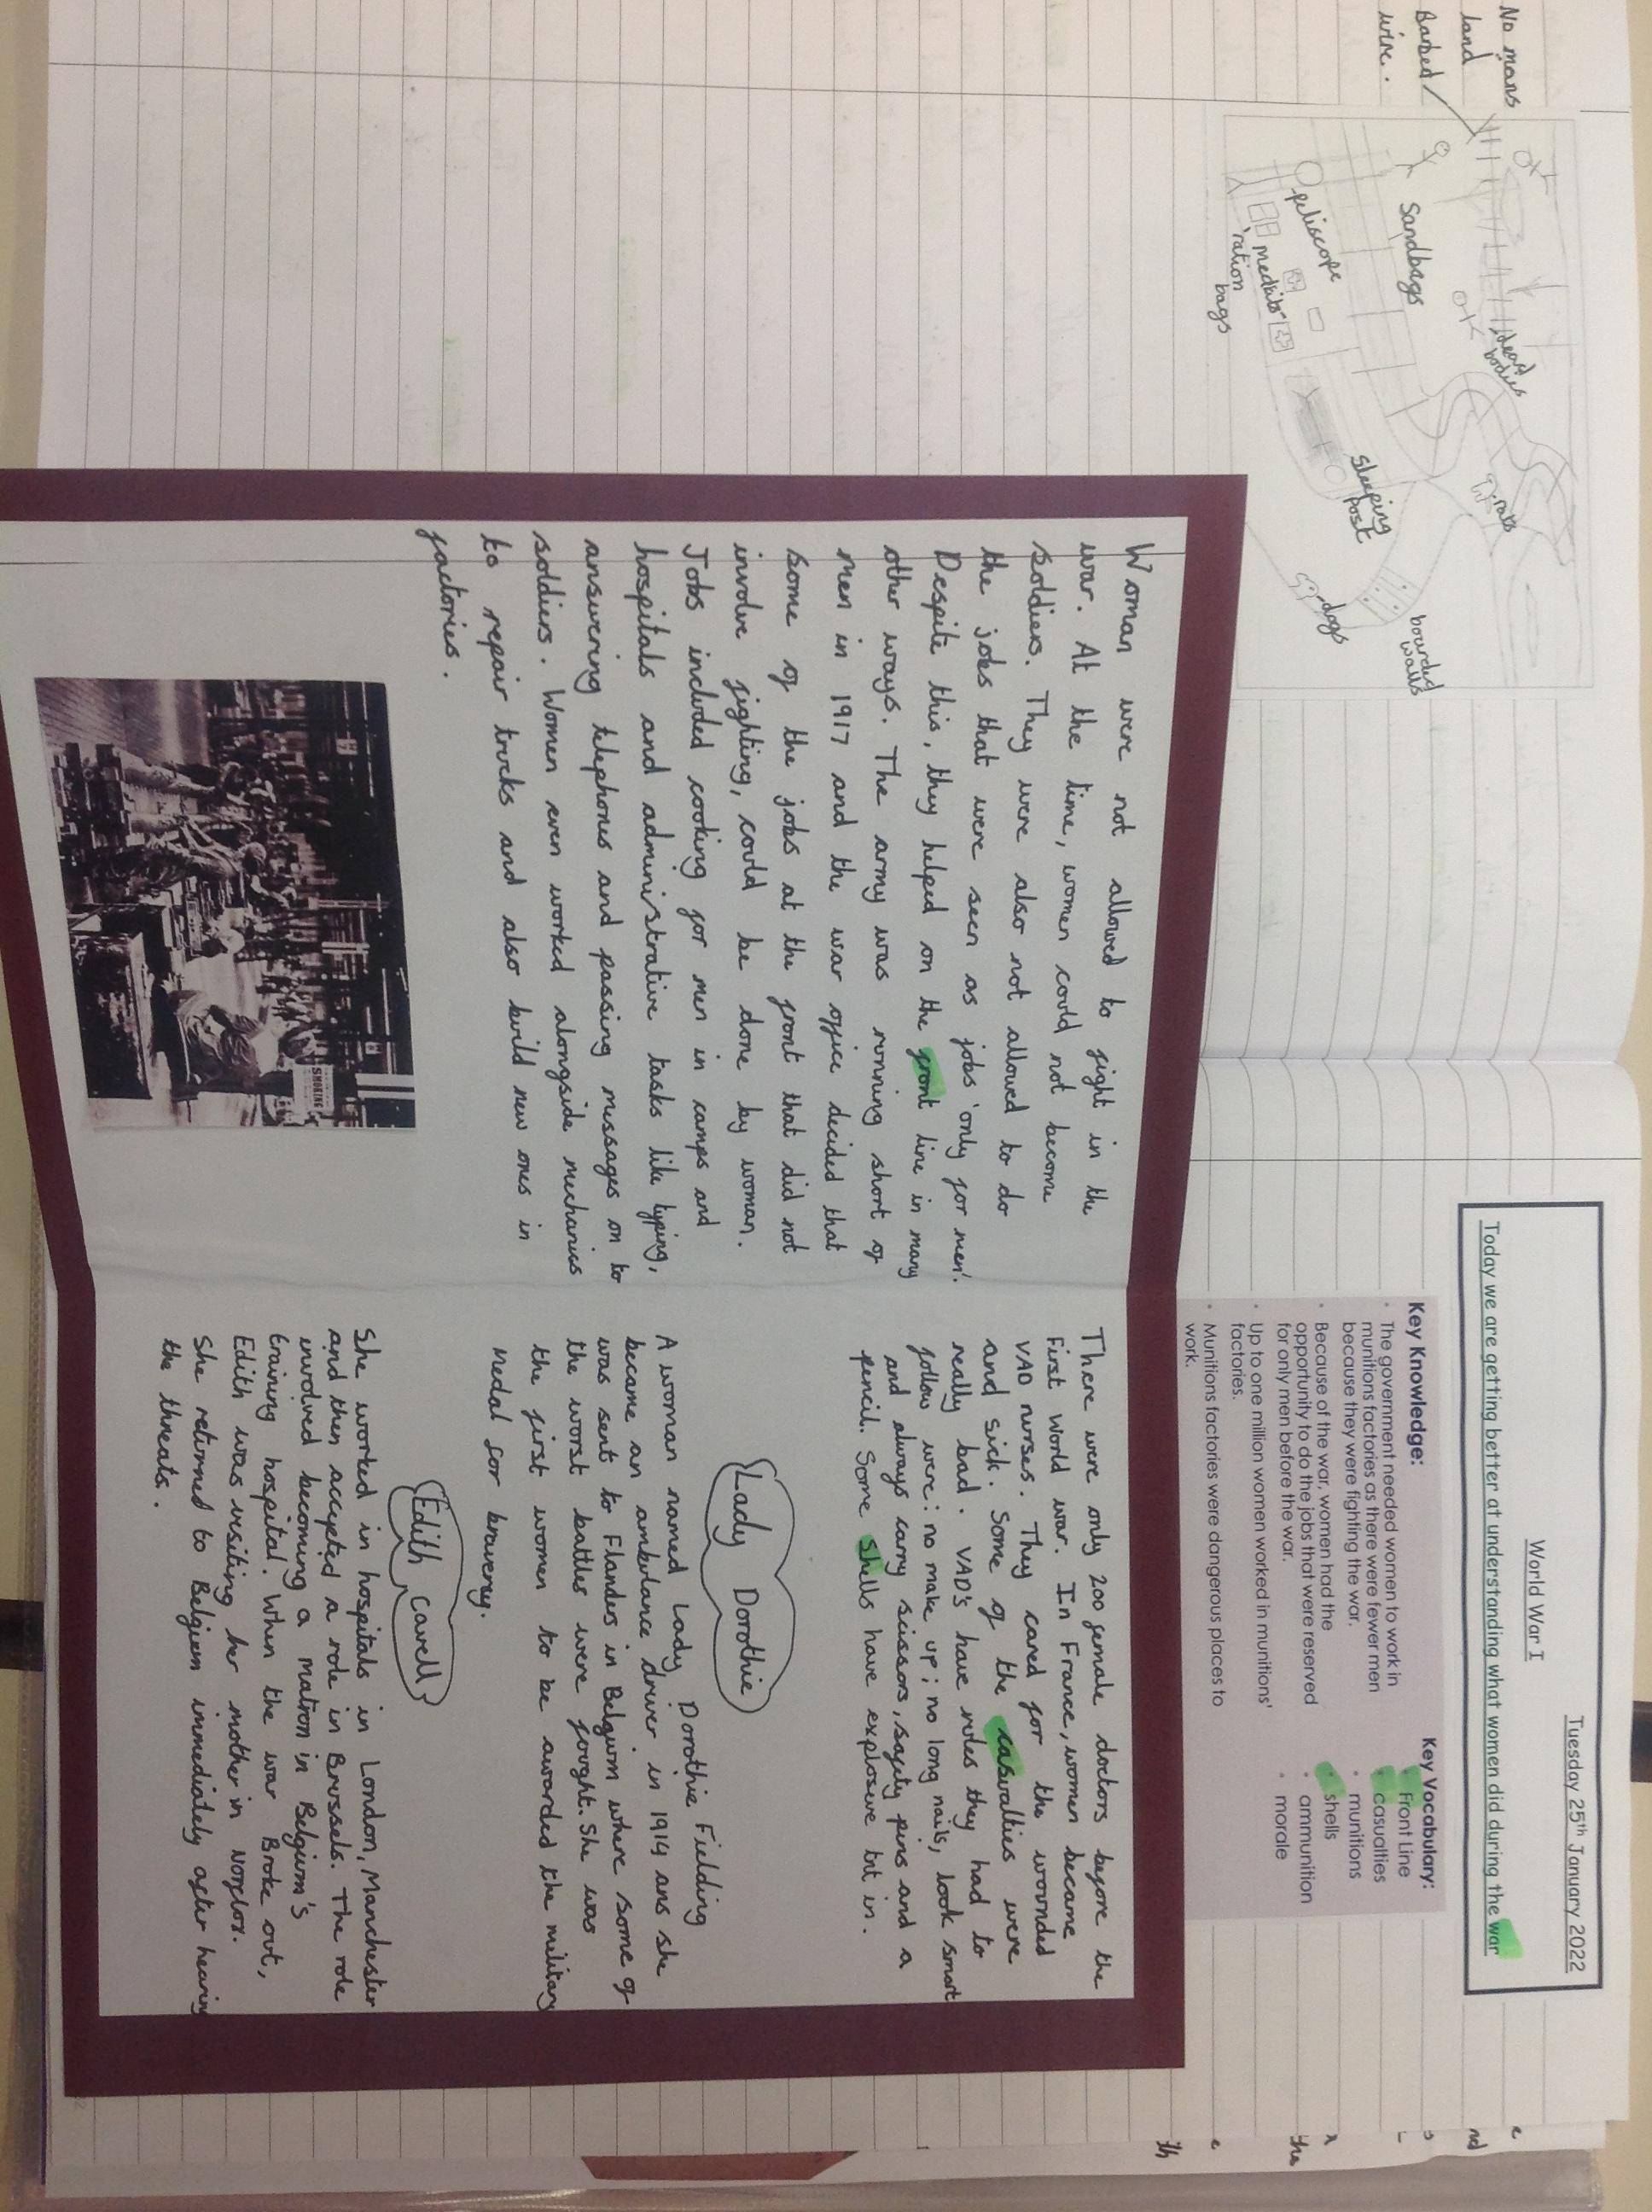 No mans
land
Barbed
wire.
Sandbags
dead
bodies
peliscope
medkits
ration
bags
sleeping
post
rats
dogs
boarded
walls
Tuesday 25th January 2022
World War I
Today we are getting better at understanding what women did during the war
Key Knowledge:
• The government needed women to work in
munitions factories as there were fewer men
because they were fighting the war.
• Because of the war, women had the
opportunity to do the jobs that were reserved
for only men before the war.
• Up to one million women worked in munitions'
factories.
• Munitions factories were dangerous places to
work.
Key Vocabulary:
• Front Line
• casualties
• munitions
• shells
• ammunition
• morale
Woman were not allowed to fight in the
war. At the time, women could not become
soldiers. They were also not allowed to do
the jobs that were seen as jobs 'only for men'.
Despite this, they helped on the front line in many
other ways. The army was running short of
men in 1917 and the war office decided that
some of the jobs at the front that did not
involve fighting, could be done by woman.
Jobs included cooking for men in camps and
hospitals and administrative tasks like typing,
answering telephones and passing messages on to
soldiers. Women even worked alongside mechanics
to repair trucks and also build new ones in
factories.
SMOKING
There were only 200 female doctors before the
First World war. In France, women became
VAD nurses. They cared for the wounded
and sick. Some of the casualties were
really bad. VAD's have rules they had to
follow were: no make up; no long nails, look smart
and always carry scissors, safety pins and a
pencil. Some shells have explosive bit in.
Lady Dorothie
A woman named Lady Dorothie Fielding
became an ambulance driver in 1914 ans she
was sent to Flanders in Belgium where some of
the worst battles were fought. She was
the first women to be awarded the military
medal for bravery.
Edith Cavell
She worked in hospitals in London, Manchester
and then accepted a role in Brussels. The role
involved becoming a matron in Belgium's
training hospital. When the war Broke out,
Edith was visiting her mother in Norfolk.
She returned to Belgium immediately after hearing
the threats.